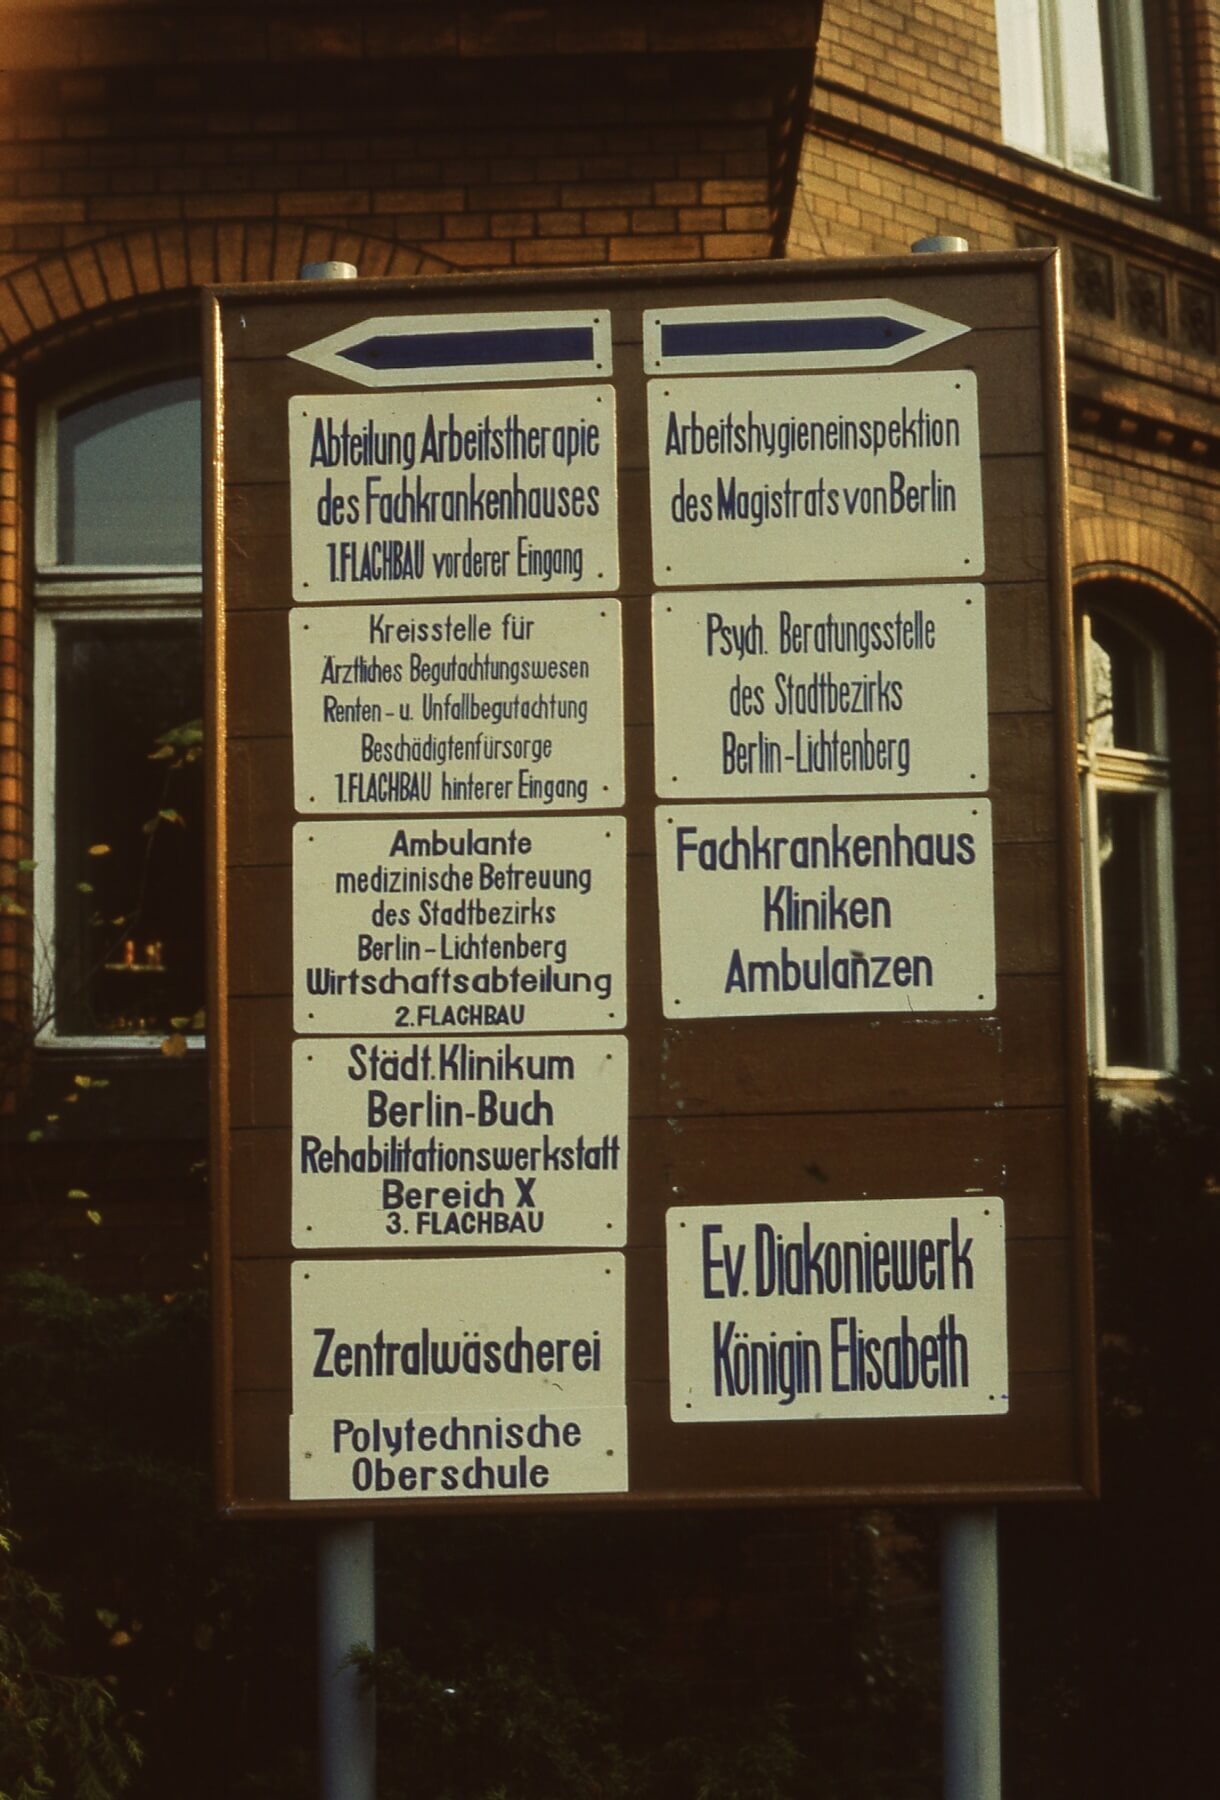 Abteilung Arbeitstherapie
des Fachkrankenhauses
1.FLACHBAU vorderer Eingang
Kreisstelle für
Ärztliches Begutachtungswesen
Renten- u. Unfallbegutachtung
Beschädigtenfürsorge
1.FLACHBAU hinterer Eingang
Ambulante
medizinische Betreuung
des Stadtbezirks
Berlin-Lichtenberg
Wirtschaftsabteilung
2.FLACHBAU
Städt. Klinikum
Berlin-Buch
Rehabilitationswerkstatt
Bereich X
3. FLACHBAU
Zentralwäscherei
Polytechnische
Oberschule
Arbeitshygieneinspektion
des Magistrats von Berlin
Psych. Beratungsstelle
des Stadtbezirks
Berlin-Lichtenberg
Fachkrankenhaus
Kliniken
Ambulanzen
Ev. Diakoniewerk
Königin Elisabeth